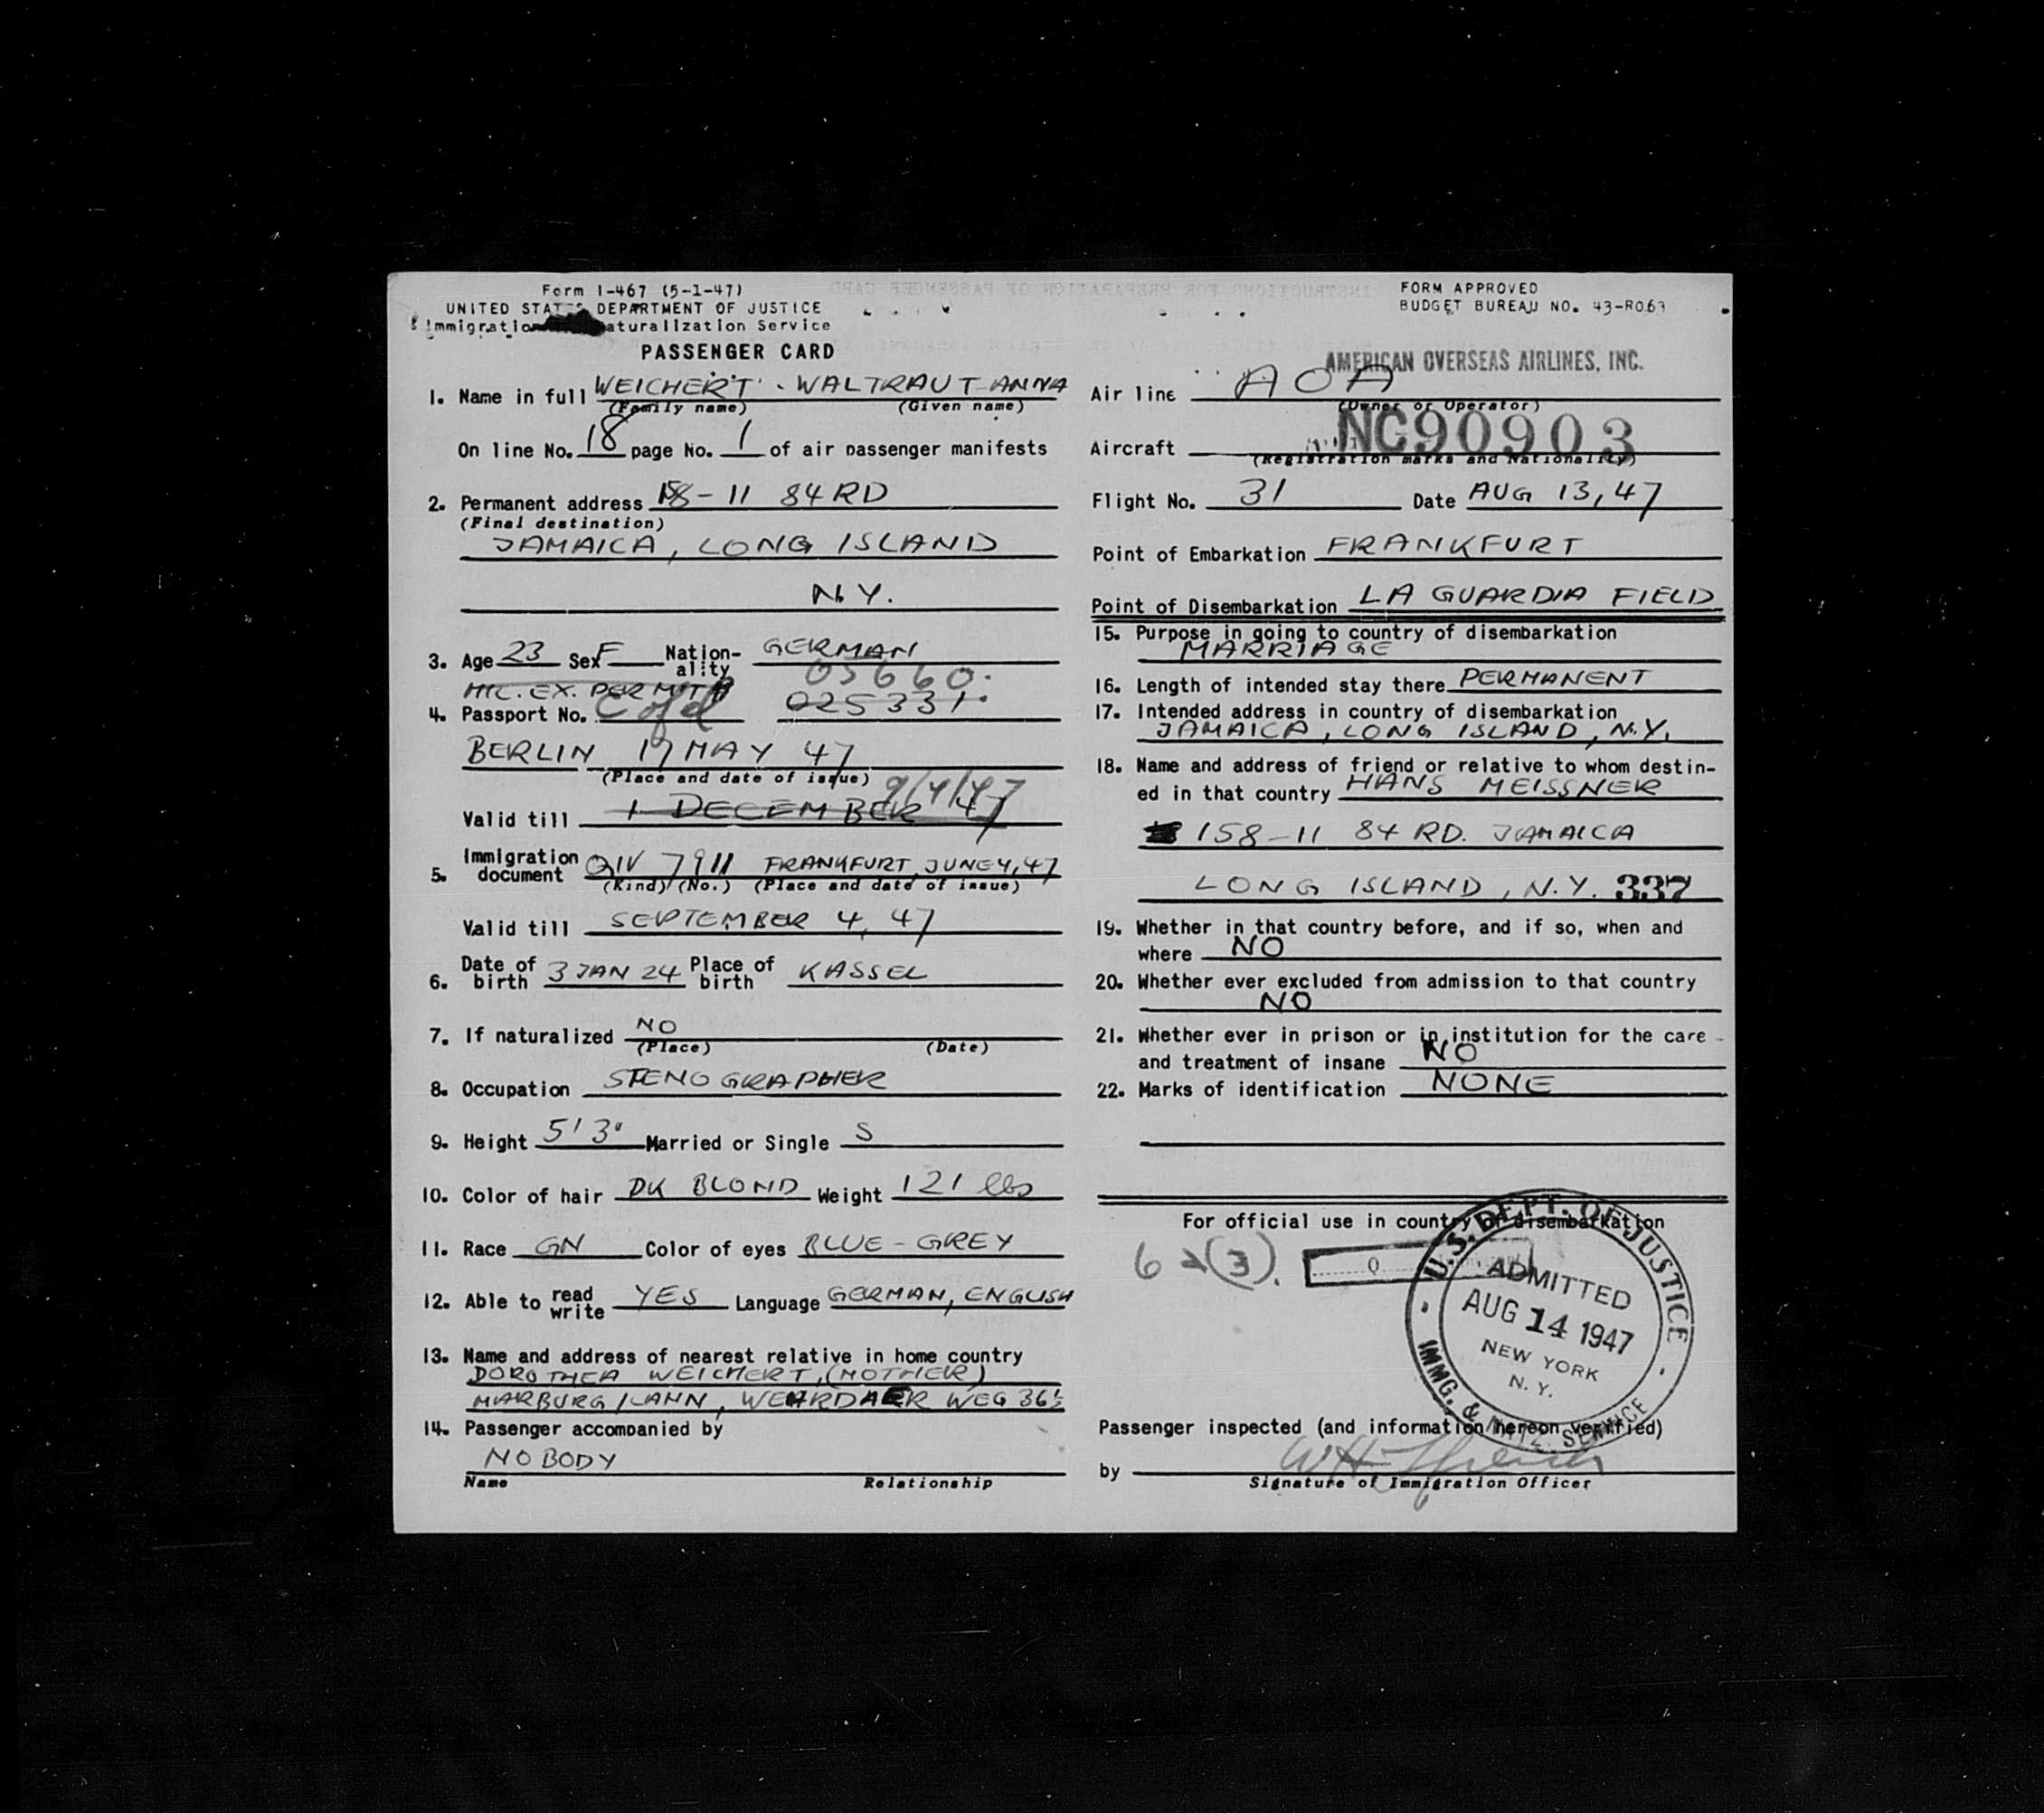 Form I-467 (5-1-47)
UNITED STATES DEPARTMENT OF JUSTICE
Immigration Naturalization Service
PASSENGER CARD
FORM APPROVED
BUDGET BUREAU NO. 43-R063
1. Name in full WEICHERT - WALTRAUT ANNA
(Family name) (Given name)
On line No. 18 page No. 1 of air passenger manifests
2. Permanent address 158-11 84 RD
(Final destination)
JAMAICA, LONG ISLAND
N.Y.
3. Age 23 Sex F Nation-ality GERMAN
05660.
MIL. EX. PERMIT
4. Passport No. C of d 025331.
BERLIN 17 MAY 47
(Place and date of issue)
9/4/47
Valid till 1 DECEMBER 47
5. Immigration document QIV 7911 FRANKFURT, JUNE 4, 47
(Kind) (No.) (Place and date of issue)
Valid till SEPTEMBER 4, 47
6. Date of birth 3 JAN 24 Place of birth KASSEL
7. If naturalized NO
(Place) (Date)
8. Occupation STENOGRAPHER
9. Height 5'3" Married or Single S
10. Color of hair DK BLOND Weight 121 lbs
11. Race GN Color of eyes BLUE-GREY
12. Able to read write YES Language GERMAN, ENGLISH
13. Name and address of nearest relative in home country
DOROTHEA WEICHERT, (MOTHER)
MARBURG/LAHN, WEHRDAER WEG 36½
14. Passenger accompanied by
NOBODY
Name Relationship
AMERICAN OVERSEAS AIRLINES, INC.
Air line AOA
(Owner or Operator)
Aircraft NC90903
(Registration marks and Nationality)
Flight No. 31 Date AUG 13, 47
Point of Embarkation FRANKFURT
Point of Disembarkation LA GUARDIA FIELD
15. Purpose in going to country of disembarkation
MARRIAGE
16. Length of intended stay there PERMANENT
17. Intended address in country of disembarkation
JAMAICA, LONG ISLAND, N.Y.
18. Name and address of friend or relative to whom destin-
ed in that country HANS MEISSNER
158-11 84 RD. JAMAICA
LONG ISLAND, N.Y. 337
19. Whether in that country before, and if so, when and
where NO
20. Whether ever excluded from admission to that country
NO
21. Whether ever in prison or in institution for the care
and treatment of insane NO
22. Marks of identification NONE
For official use in country of disembarkation
6 2(3). Q
U.S. DEPT. OF JUSTICE
ADMITTED
AUG 14 1947
NEW YORK
N. Y.
IMMG. & NATZ. SERVICE
Passenger inspected (and information hereon verified)
by
Signature of Immigration Officer